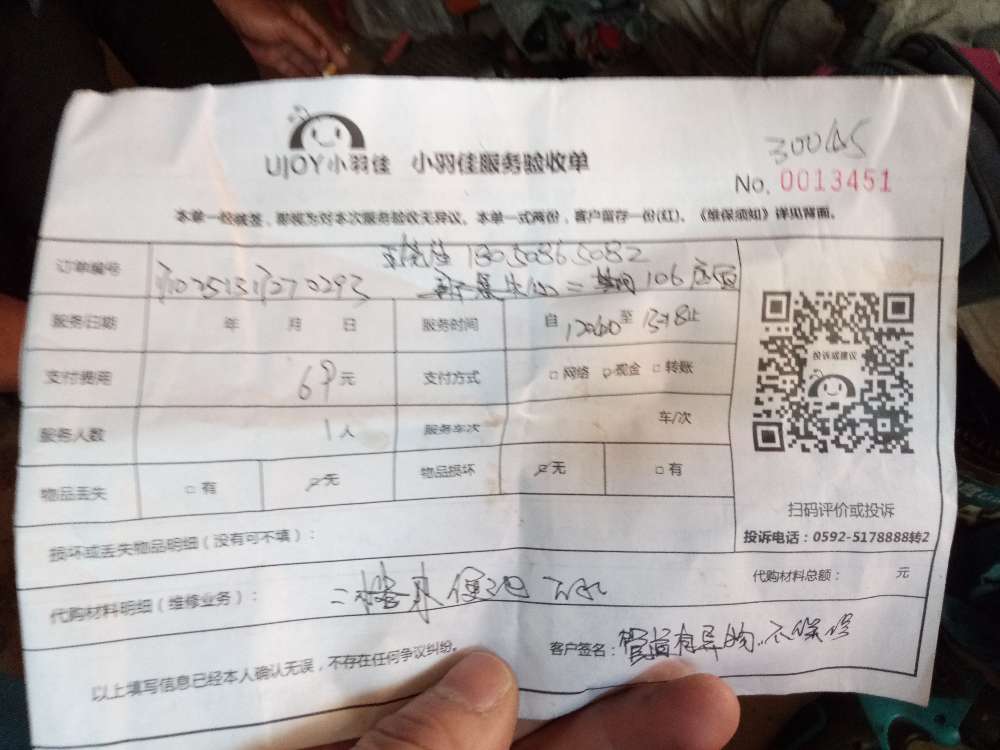 UJOY小羽佳 小羽佳服务验收单
300
No. 0013451
本单一经签签,即视为对本次服务验收无异议。本单一式两份,客户留存一份(红)。《维保须知》详见背面。
订单编号 18050865082
二 106店面
服务日期 年 月 日 服务时间 自 至 止
支付费用 69元 支付方式 □网络 □现金 □转账
服务人数 1人 服务车次 车/次
物品丢失 □有 □无 物品损坏 □无 □有
投诉或建议
扫码评价或投诉
投诉电话:0592-5178888转2
损坏或丢失物品明细(没有可不填):
代购材料明细(维修业务): 二楼 便池 代购材料总额: 元
以上填写信息已经本人确认无误,不存在任何争议纠纷。 客户签名: 管道有异物 不保